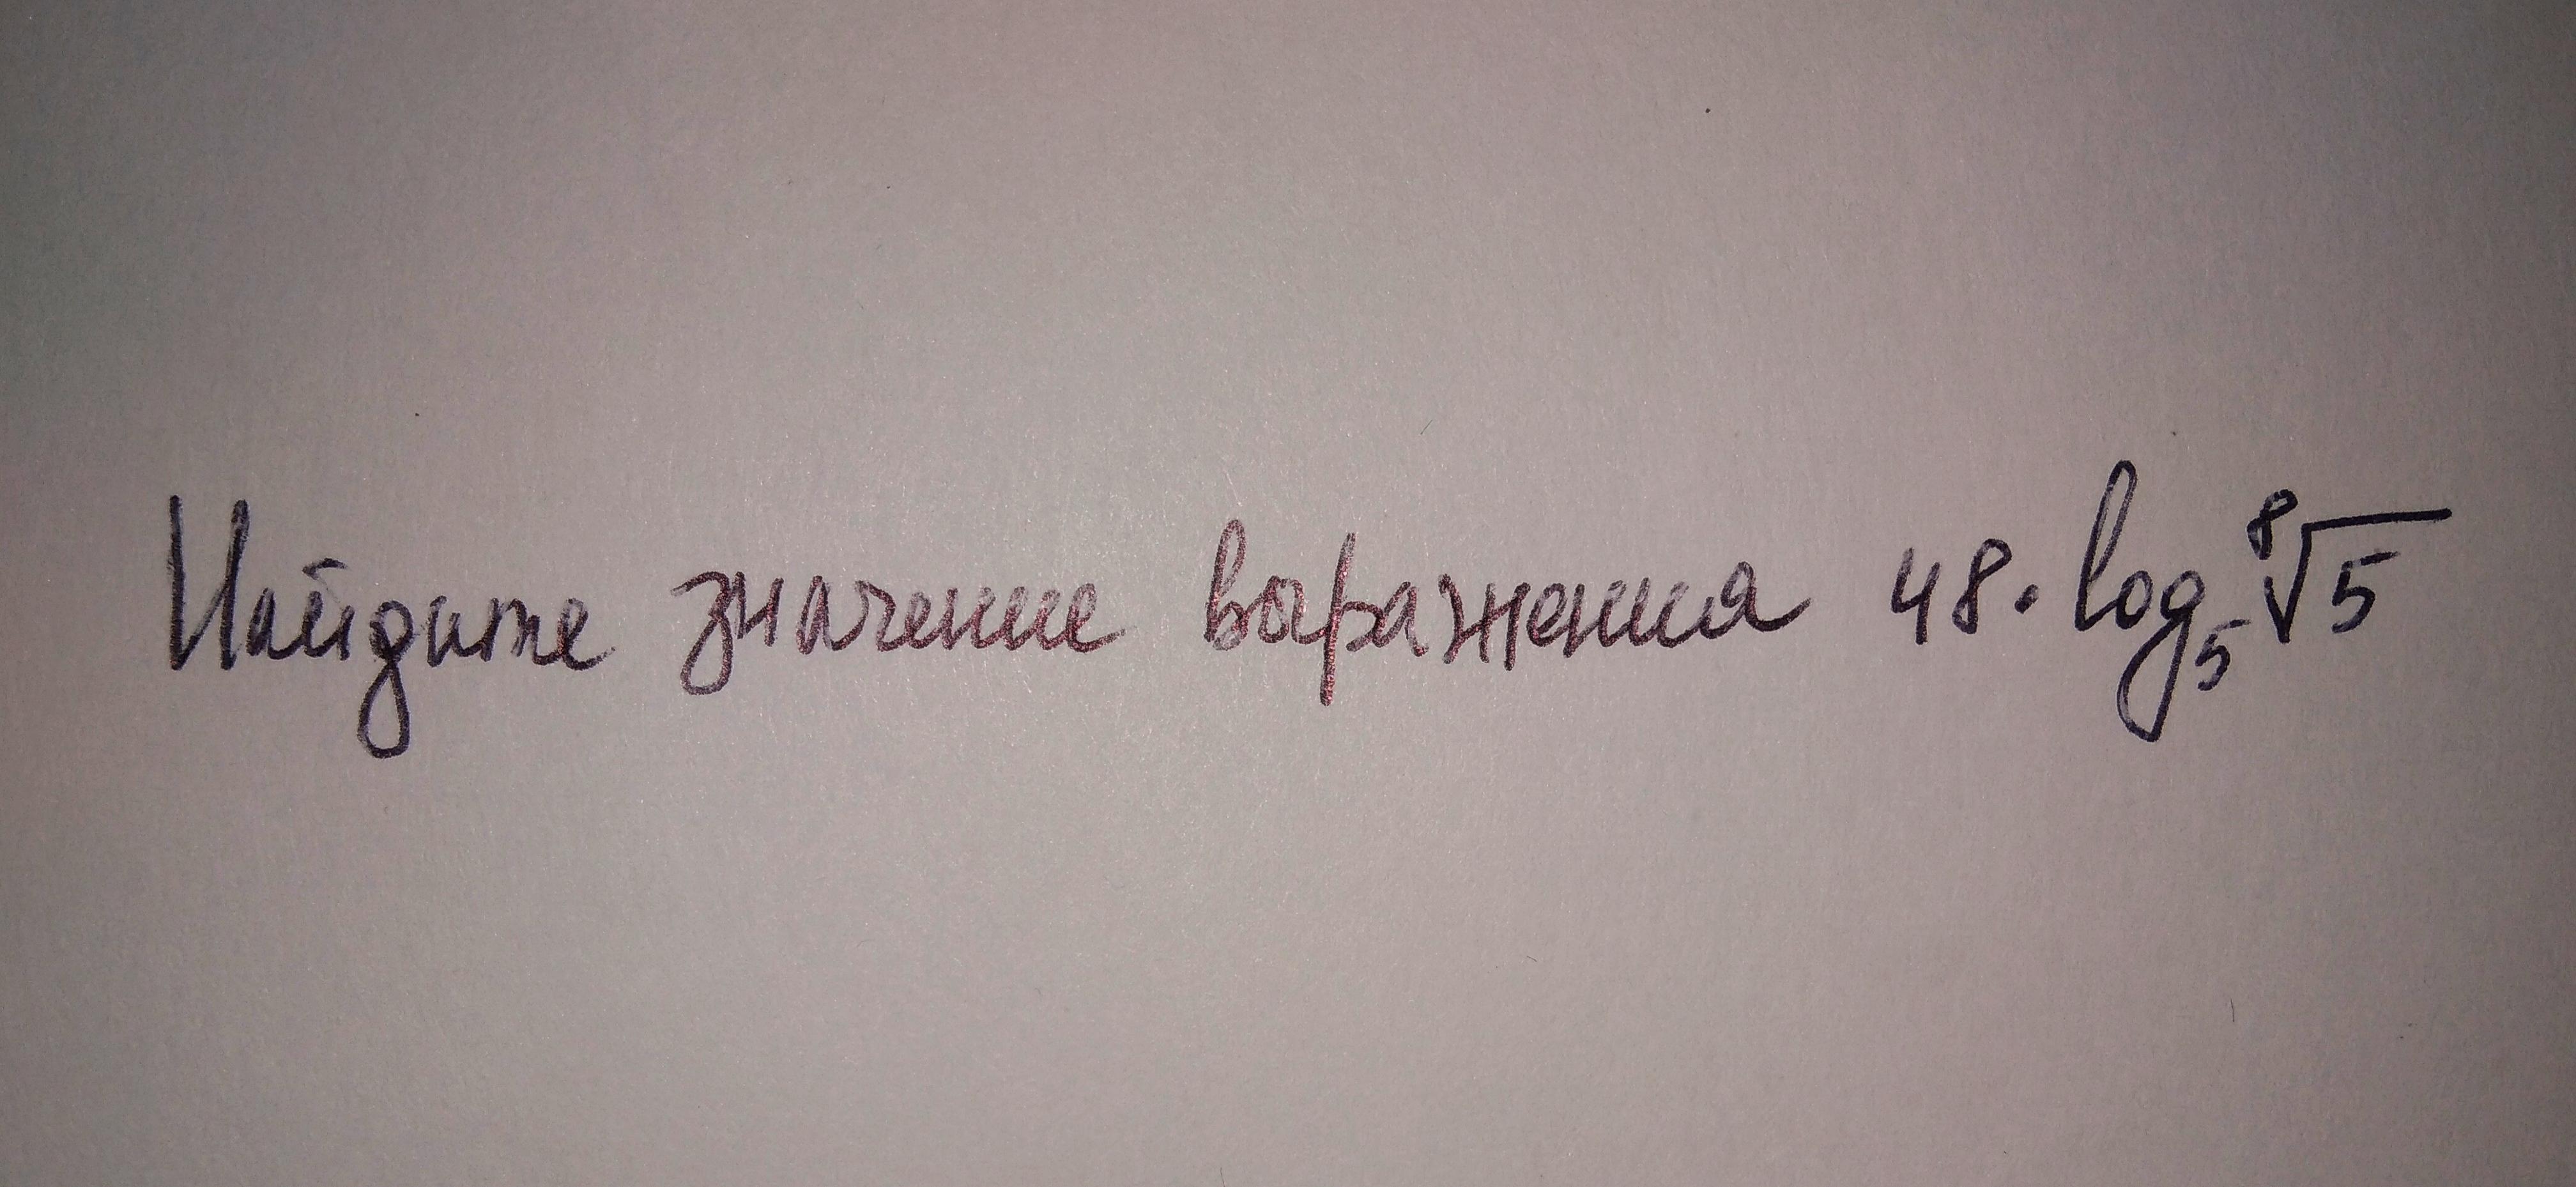 Найдите значение выражения 48 · log₅ ⁸√5